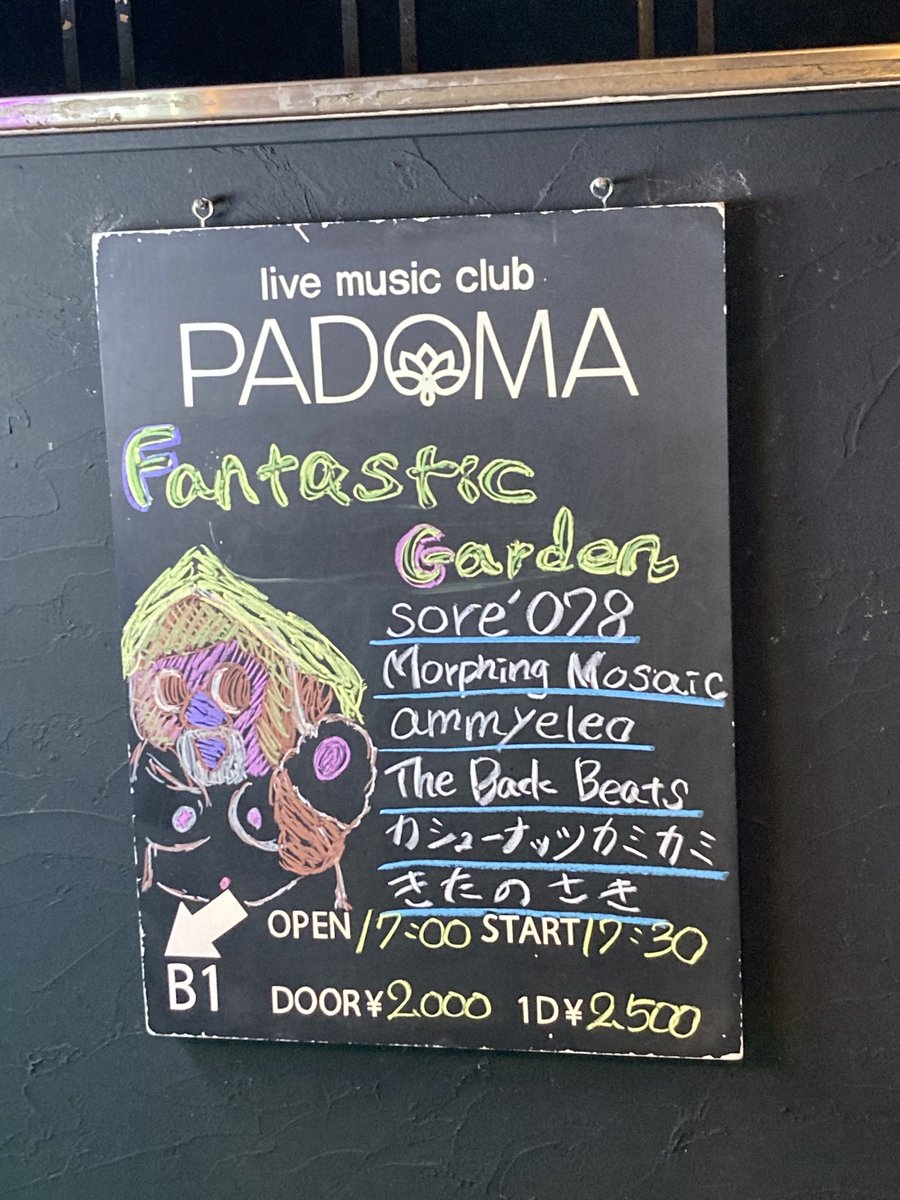 live music club
PADOMA
Fantastic
Garden
sore'078
Morphing Mosaic
ammyelea
The Back Beats
カシューナッツカミカミ
きたのさき
OPEN 17:00 START 17:30
B1
DOOR¥2.000 1D¥2.500